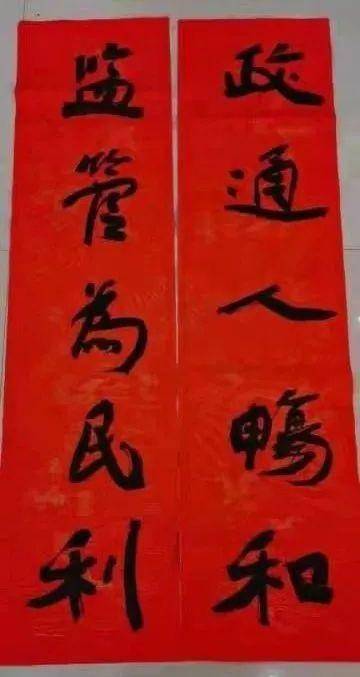 政通人暢和
监管為民利